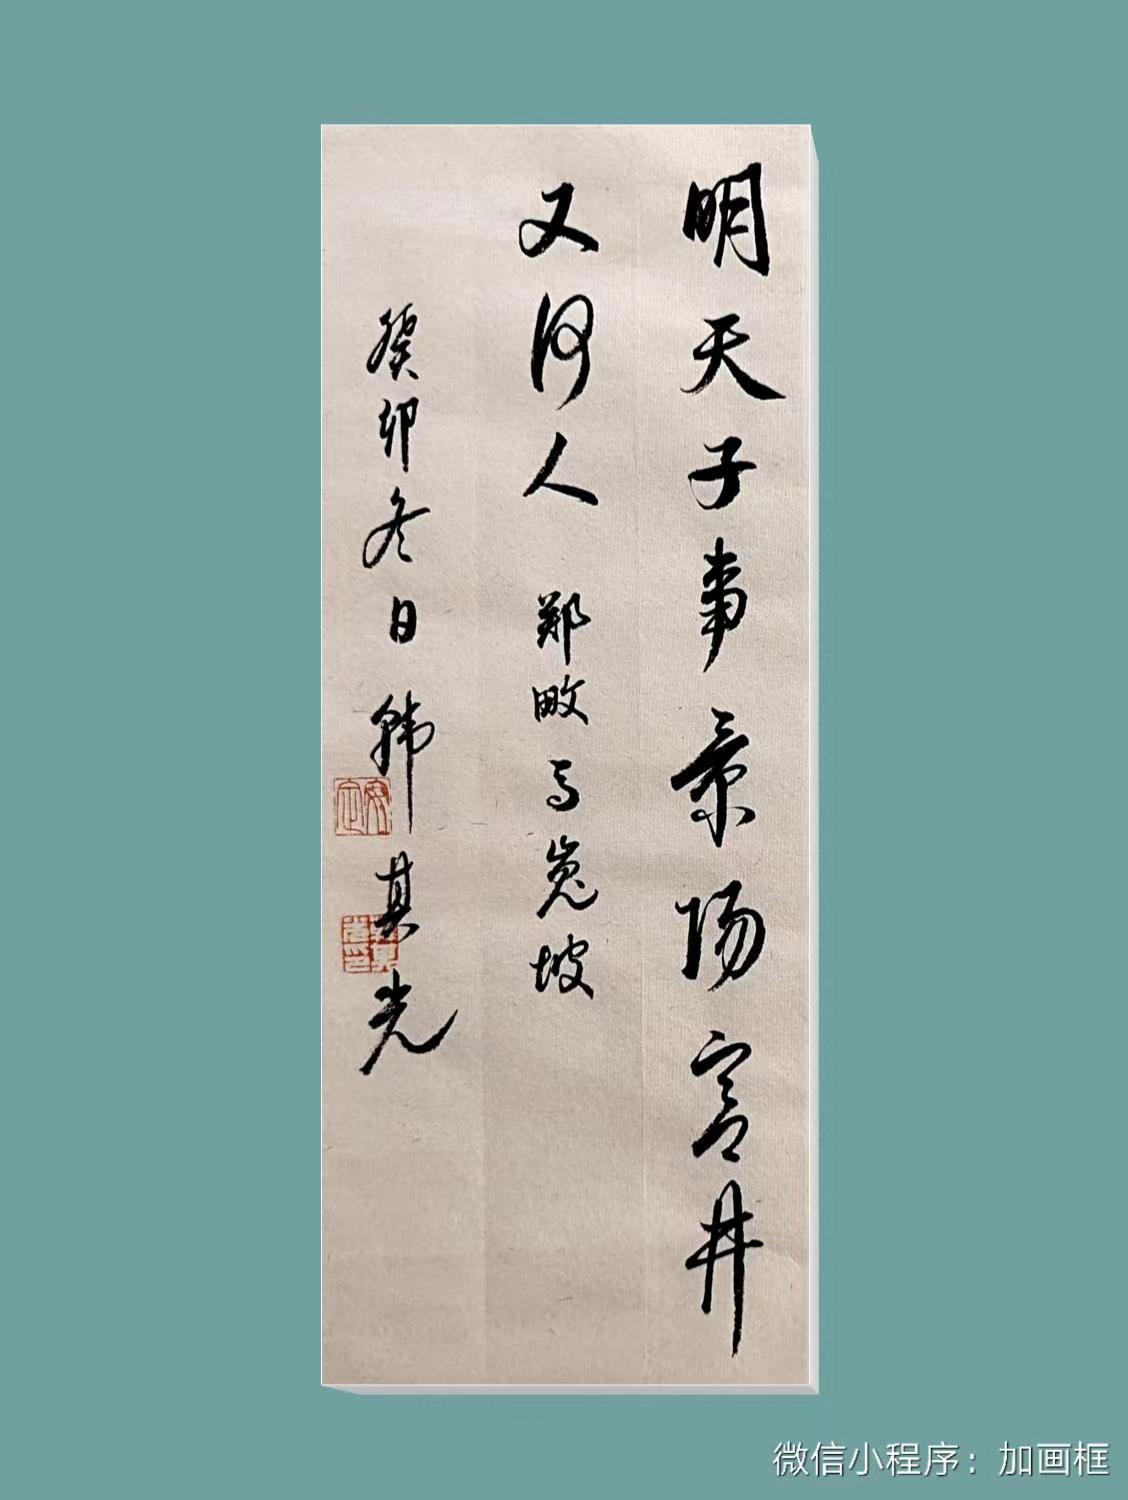 明天子事景阳宫井
又何人 郑畋马嵬坡
癸卯冬日韩其光
微信小程序：加画框